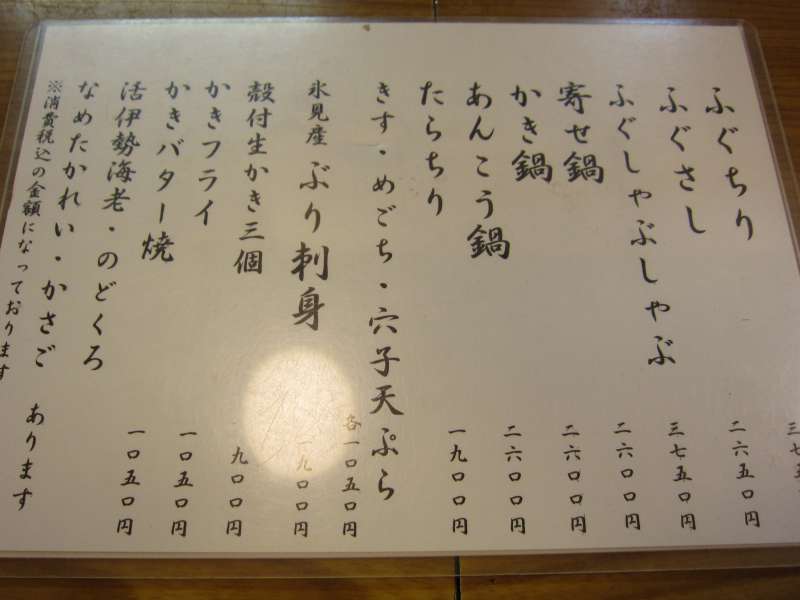 ふぐちり 三七五
ふぐさし 二六五〇円
ふぐしゃぶしゃぶ 三七五〇円
寄せ鍋 二六〇〇円
かき鍋 二六〇〇円
あんこう鍋 二六〇〇円
たらちり 一九〇〇円
きす・めごち・穴子天ぷら 各一〇五〇円
氷見産 ぶり刺身 一九〇〇円
殻付生かき三個 九〇〇円
かきフライ 一〇五〇円
かきバター焼 一〇五〇円
活伊勢海老・のどくろ
なめたかれい・かさご あります
※消費税込の金額になっております